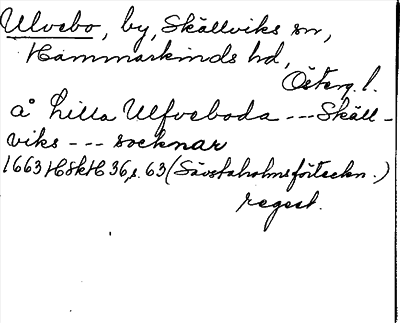 Ulvebo, by, Skällviks sn,
Hammarkinds hd,
Österg. l.
å Lilla Ulfveboda --- Skäll-
viks --- socknar
1663 HSkH 36, s. 63 (Sävstaholmsförteckn.)
regest.